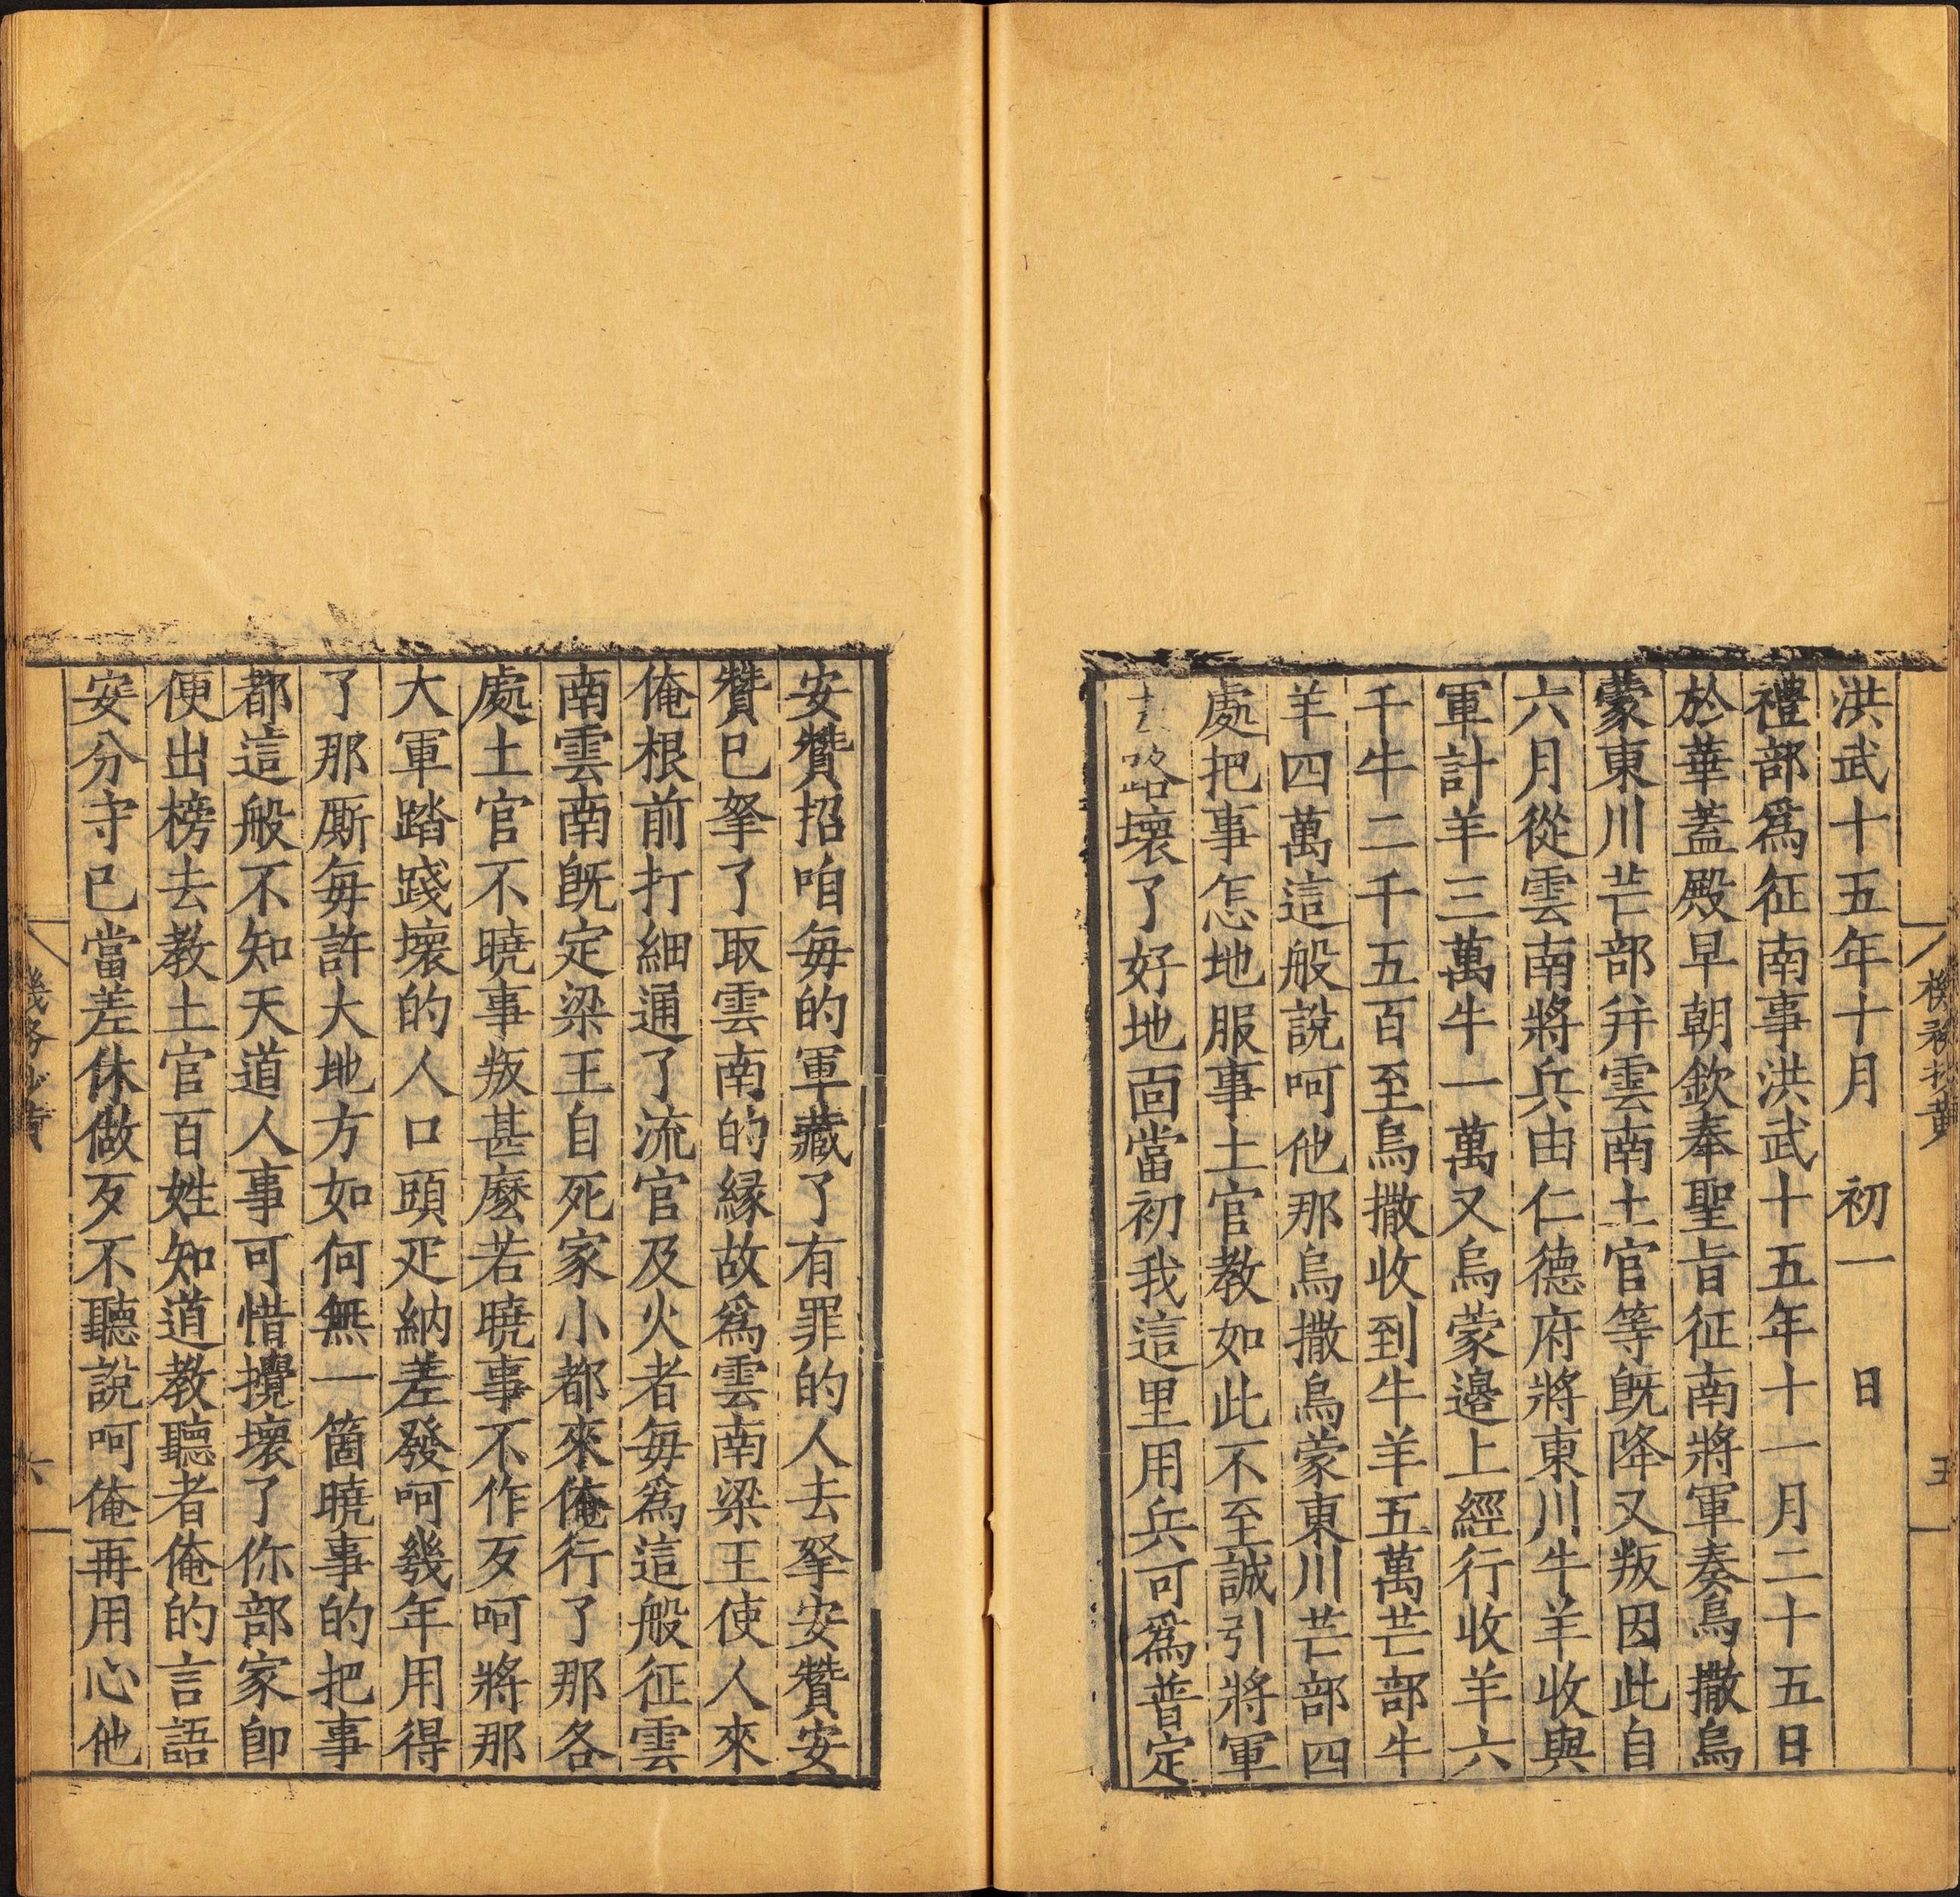 洪武十五年十月　初一　日
禮部爲征南事洪武十五年十一月二十五日
於華蓋殿早朝欽奉聖旨征南將軍奏烏撒烏
蒙東川芒部并雲南土官等既降又叛因此自
六月從雲南將兵由仁德府將東川牛羊收與
軍計羊三萬牛一萬又烏蒙邉上經行收羊六
千牛二千五百至烏撒收到牛羊五萬芒部牛
羊四萬這般說呵他那烏撒烏蒙東川芒部四
處把事怎地服事土官教如此不至誠引將軍
路壞了好地面當初我這里用兵可爲普定
安贊招咱毎的軍藏了有罪的人去拏安贊安
贊已拏了取雲南的緣故爲雲南梁王使人來
俺根前打細通了流官及火者毎爲這般征雲
南雲南既定梁王自死家小都來俺行了那各
處土官不曉事叛甚麼若曉事不作歹呵將那
大軍踏踐壞的人口頭疋納差發呵幾年用得
了那厮毎許大地方如何無一箇曉事的把事
都這般不知天道人事可惜攪壞了你部家即
便出榜去教土官百姓知道教聽者俺的言語
安分守已當差休做歹不聽說呵俺再用心他
六